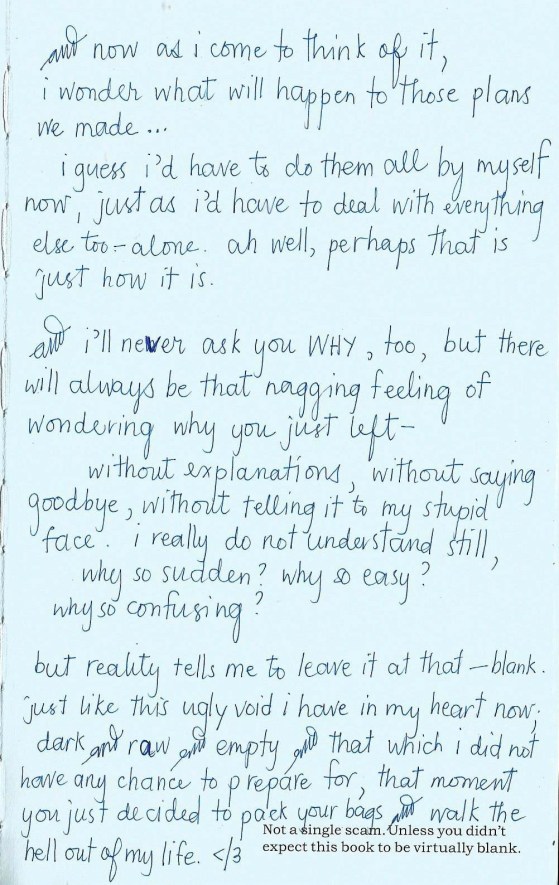 and now as i come to think of it,
i wonder what will happen to those plans
we made...
i guess i'd have to do them all by myself
now, just as i'd have to deal with everything
else too - alone. ah well, perhaps that is
just how it is.
and i'll never ask you WHY, too, but there
will always be that nagging feeling of
wondering why you just left -
without explanations, without saying
goodbye, without telling it to my stupid
face. i really do not understand still,
why so sudden? why so easy?
why so confusing?
but reality tells me to leave it at that - blank.
just like this ugly void i have in my heart now;
dark and raw and empty and that which i did not
have any chance to prepare for, that moment
you just decided to pack your bags and walk the
hell out of my life. </3
Not a single scam. Unless you didn't
expect this book to be virtually blank.